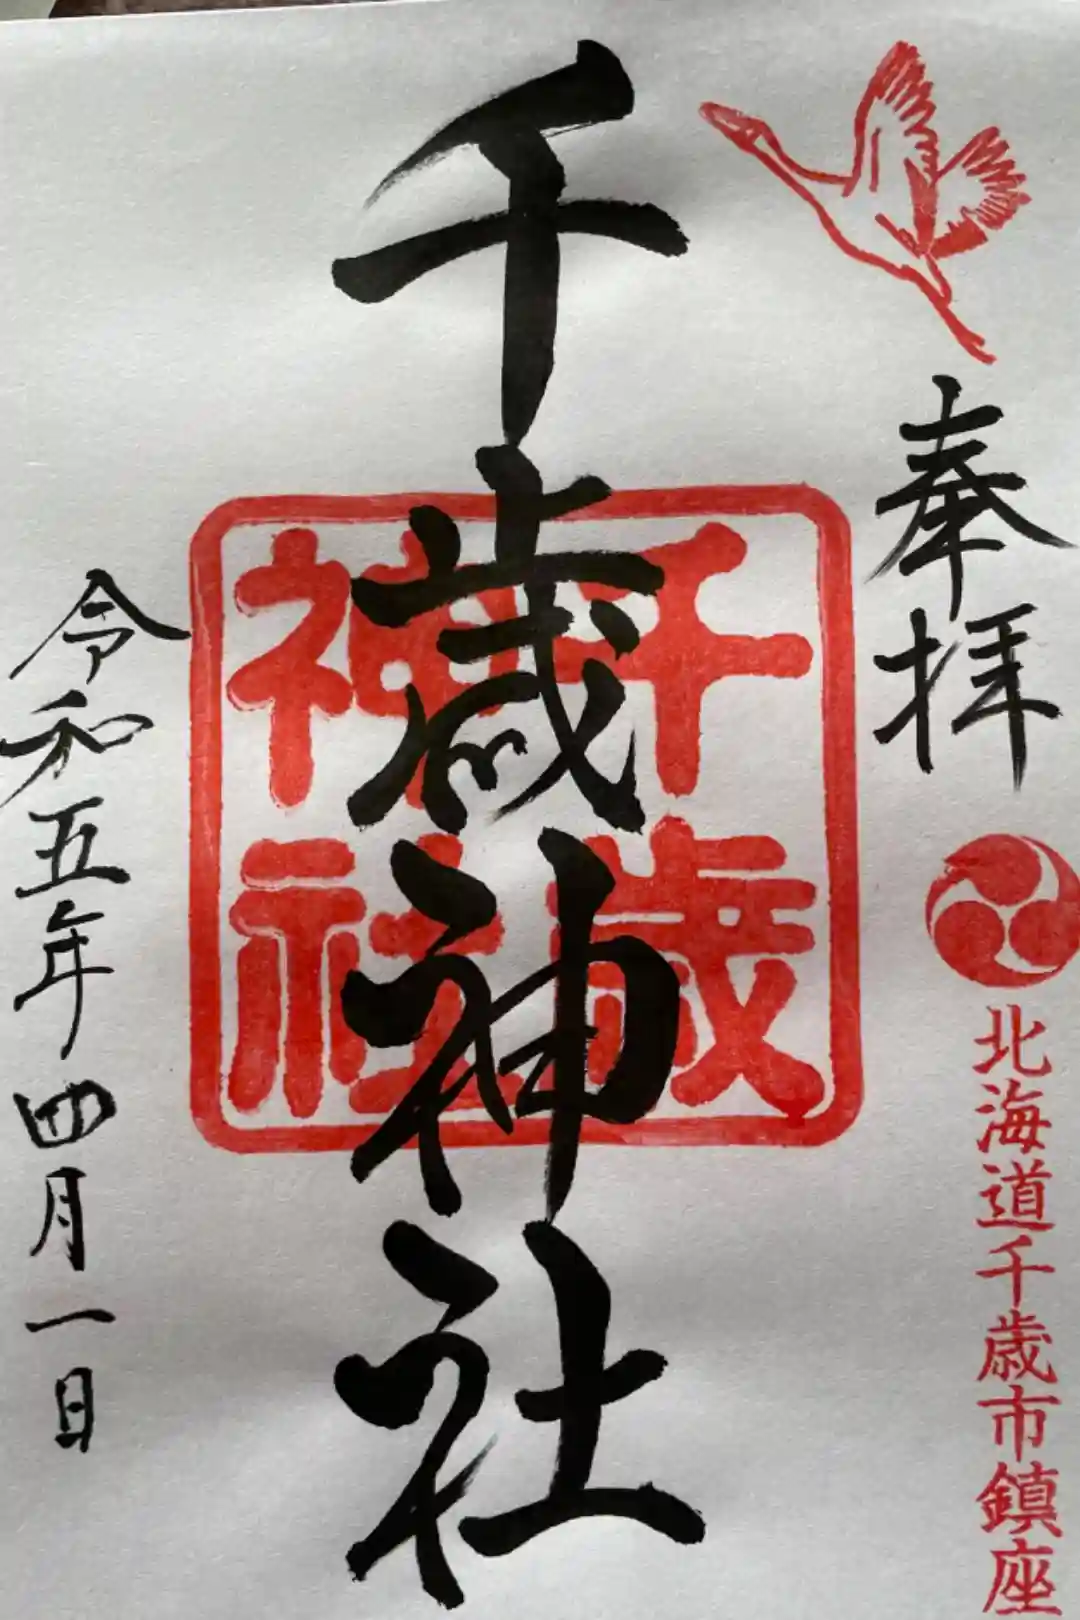 奉拝
北海道千歳市鎮座
千歳神社
千歳
神社
令和五年四月一日